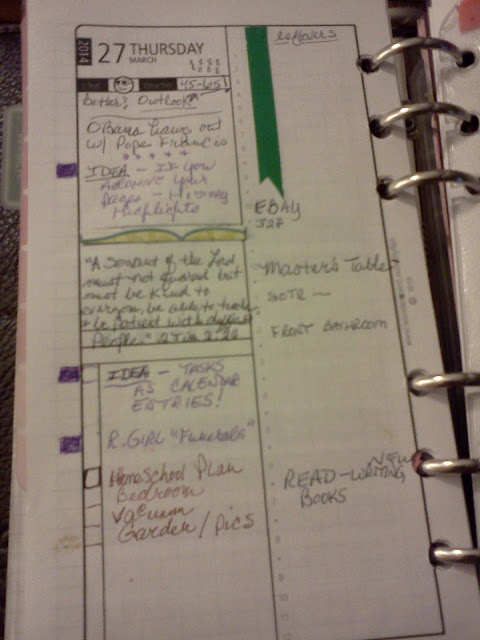 2014
27 THURSDAY
MARCH
45-65
Better? Outlook
Obama hangs out
w/ Pope Francis
IDEA - If you
your
pages -
Highlights
"A servant of the Lord
must not quarrel but
must be kind to
everyone, be able to teach
& be patient with difficult
People." 2 Tim 2:24
IDEA - TASKS
AS CALENDAR
ENTRIES!
R. GIRL "Funerals"
Homeschool Plan
Bedroom
Vacuum
Garden / Pics
leftovers
EBAY
Master's Table
SOTR -
FRONT BATHROOM
NEW
READ - WRITING
BOOKS